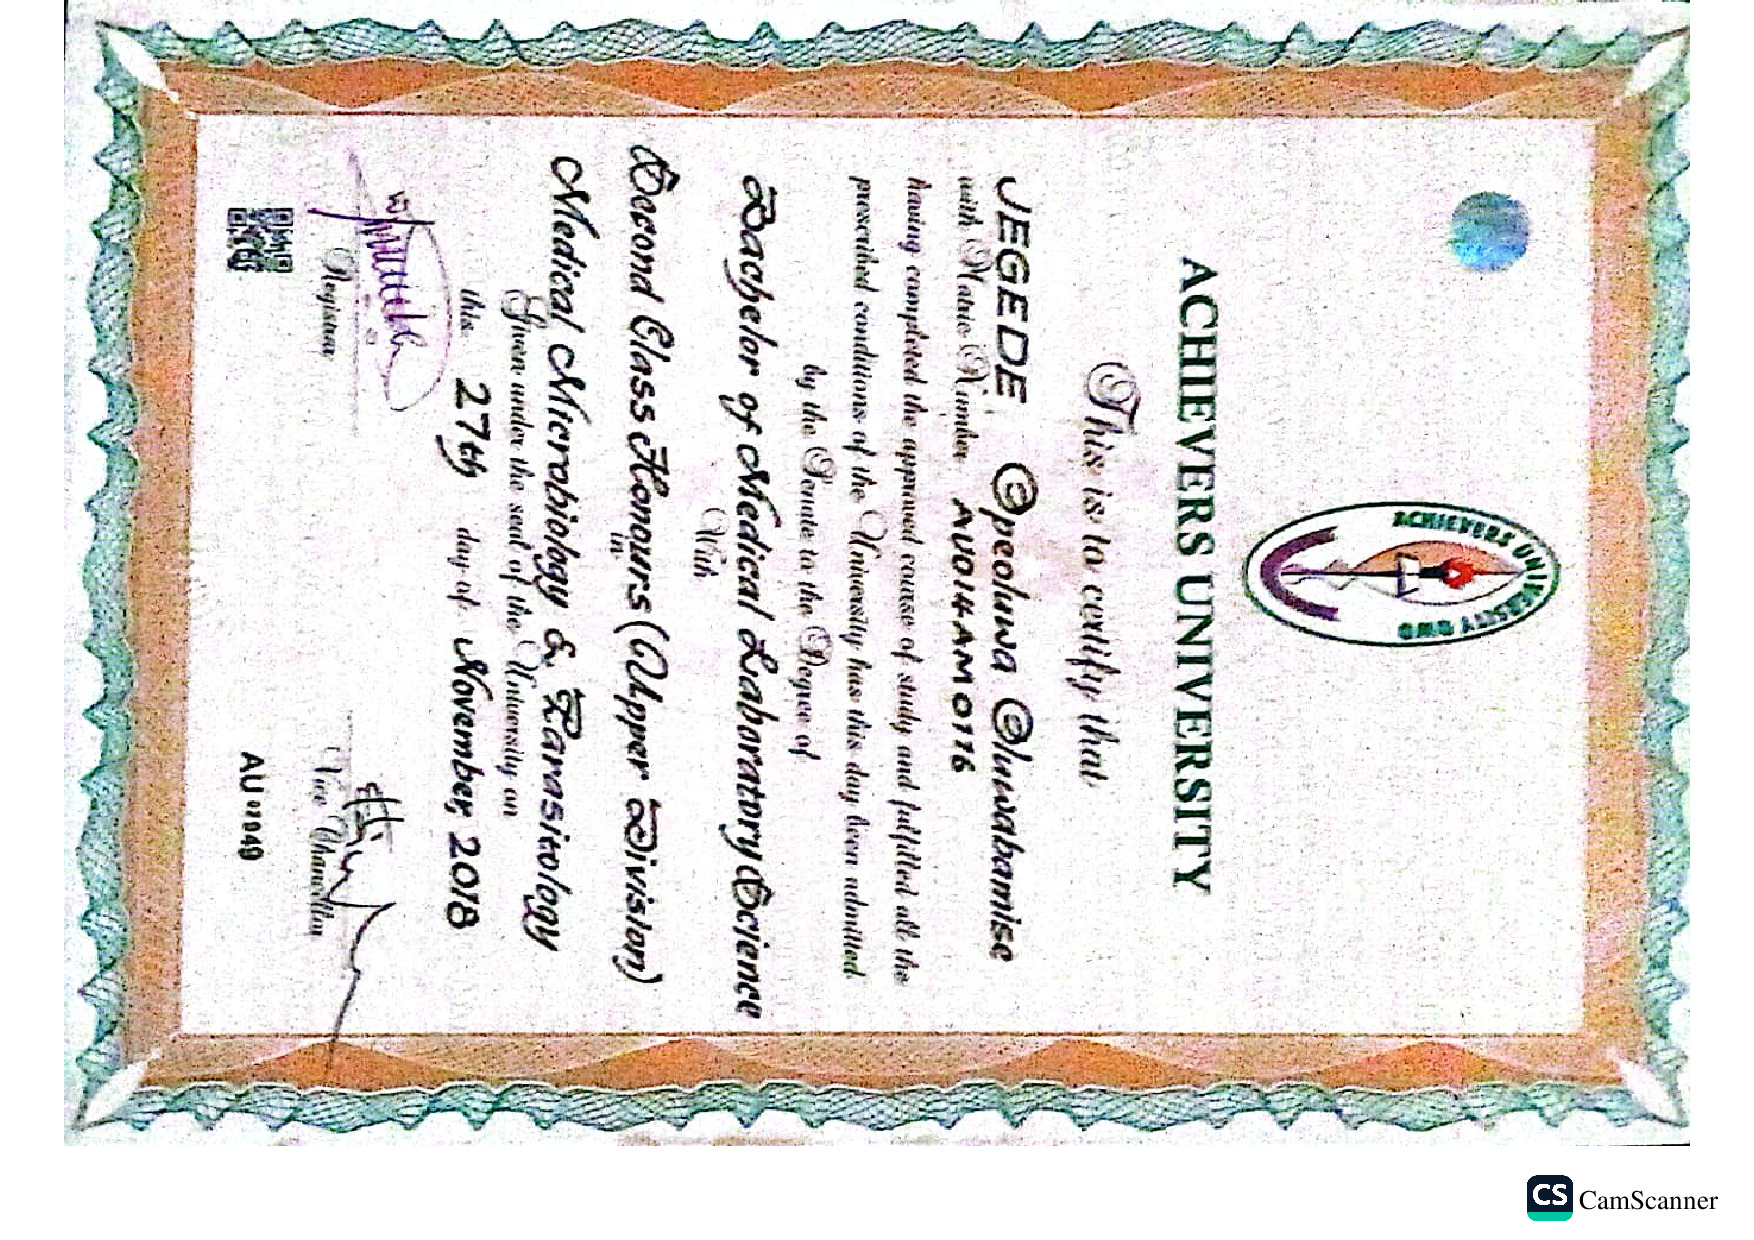 ACHIEVERS UNIVERSITY OWO
ACHIEVERS UNIVERSITY
This is to certify that
JEGEDE Opeoluwa Oluwabamise
with Matric Number AUO14AM0116
having completed the approved course of study and fulfilled all the
prescribed conditions of the University has this day been admitted
by the Senate to the Degree of
Bachelor of Medical Laboratory Science
With
Second Class Honours (Upper Division)
in
Medical Microbiology & Parasitology
Given under the seal of the University on
this 27th day of November, 2018
Registrar
Vice Chancellor
AU
CS CamScanner